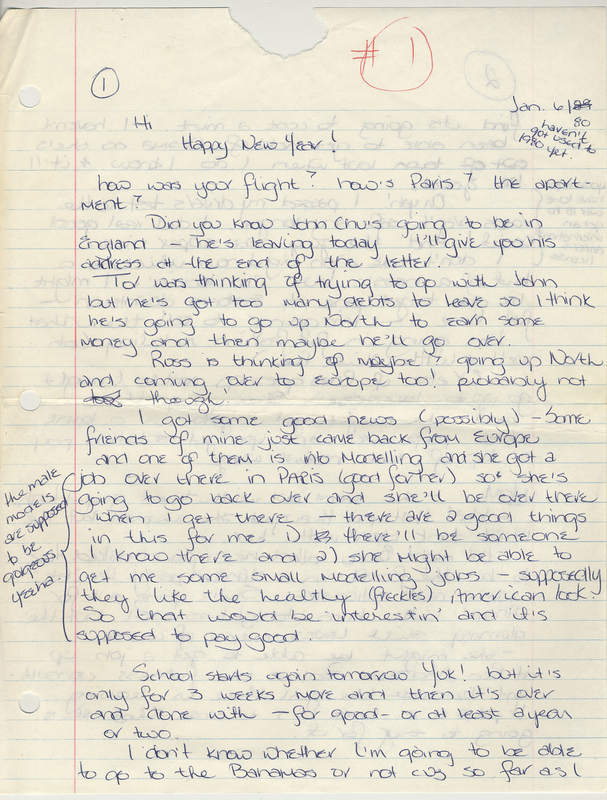 # 1
1
Jan. 6/89
80
haven't
got used to
1980 yet.
Hi
Happy New Year!
how was your flight? how's Paris? the apart-
ment?
Did you know John Chu's going to be in
England - he's leaving today I'll give you his
address at the end of the letter.
Tor was thinking of trying to go with John
but he's got too many debts to leave so I think
he's going to go up North to earn some
money and then maybe he'll go over.
Ross is thinking of maybe? going up North
and coming over to Europe too! probably not
though!
I got some good news (possibly) - some
friends of mine just came back from Europe
and one of them is into Modelling and she got a
job over there in PARIS (good for her) so she's
going to go back over and she'll be over there
when I get there - there are 2 good things
in this for me 1) there'll be someone
I know there and 2) she might be able to
get me some small modelling jobs - supposedly
they like the healthy (freckles), American look!
So that would be interestin' and it's
supposed to pay good.
the male
models
are supposed
to be
gorgeous
Yeeha.
School starts again tomorrow Yuk! but it's
only for 3 weeks more and then it's over
and done with - for good - or at least a year
or two.
I don't know whether I'm going to be able
to go to the Bahamas or not cuz so far as I